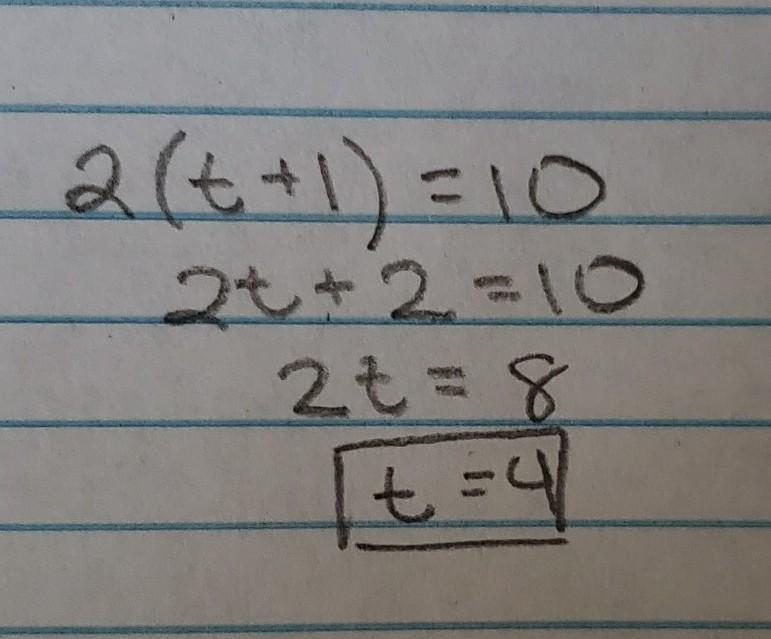 2(t+1)=10
2t+2=10
2t=8
t=4